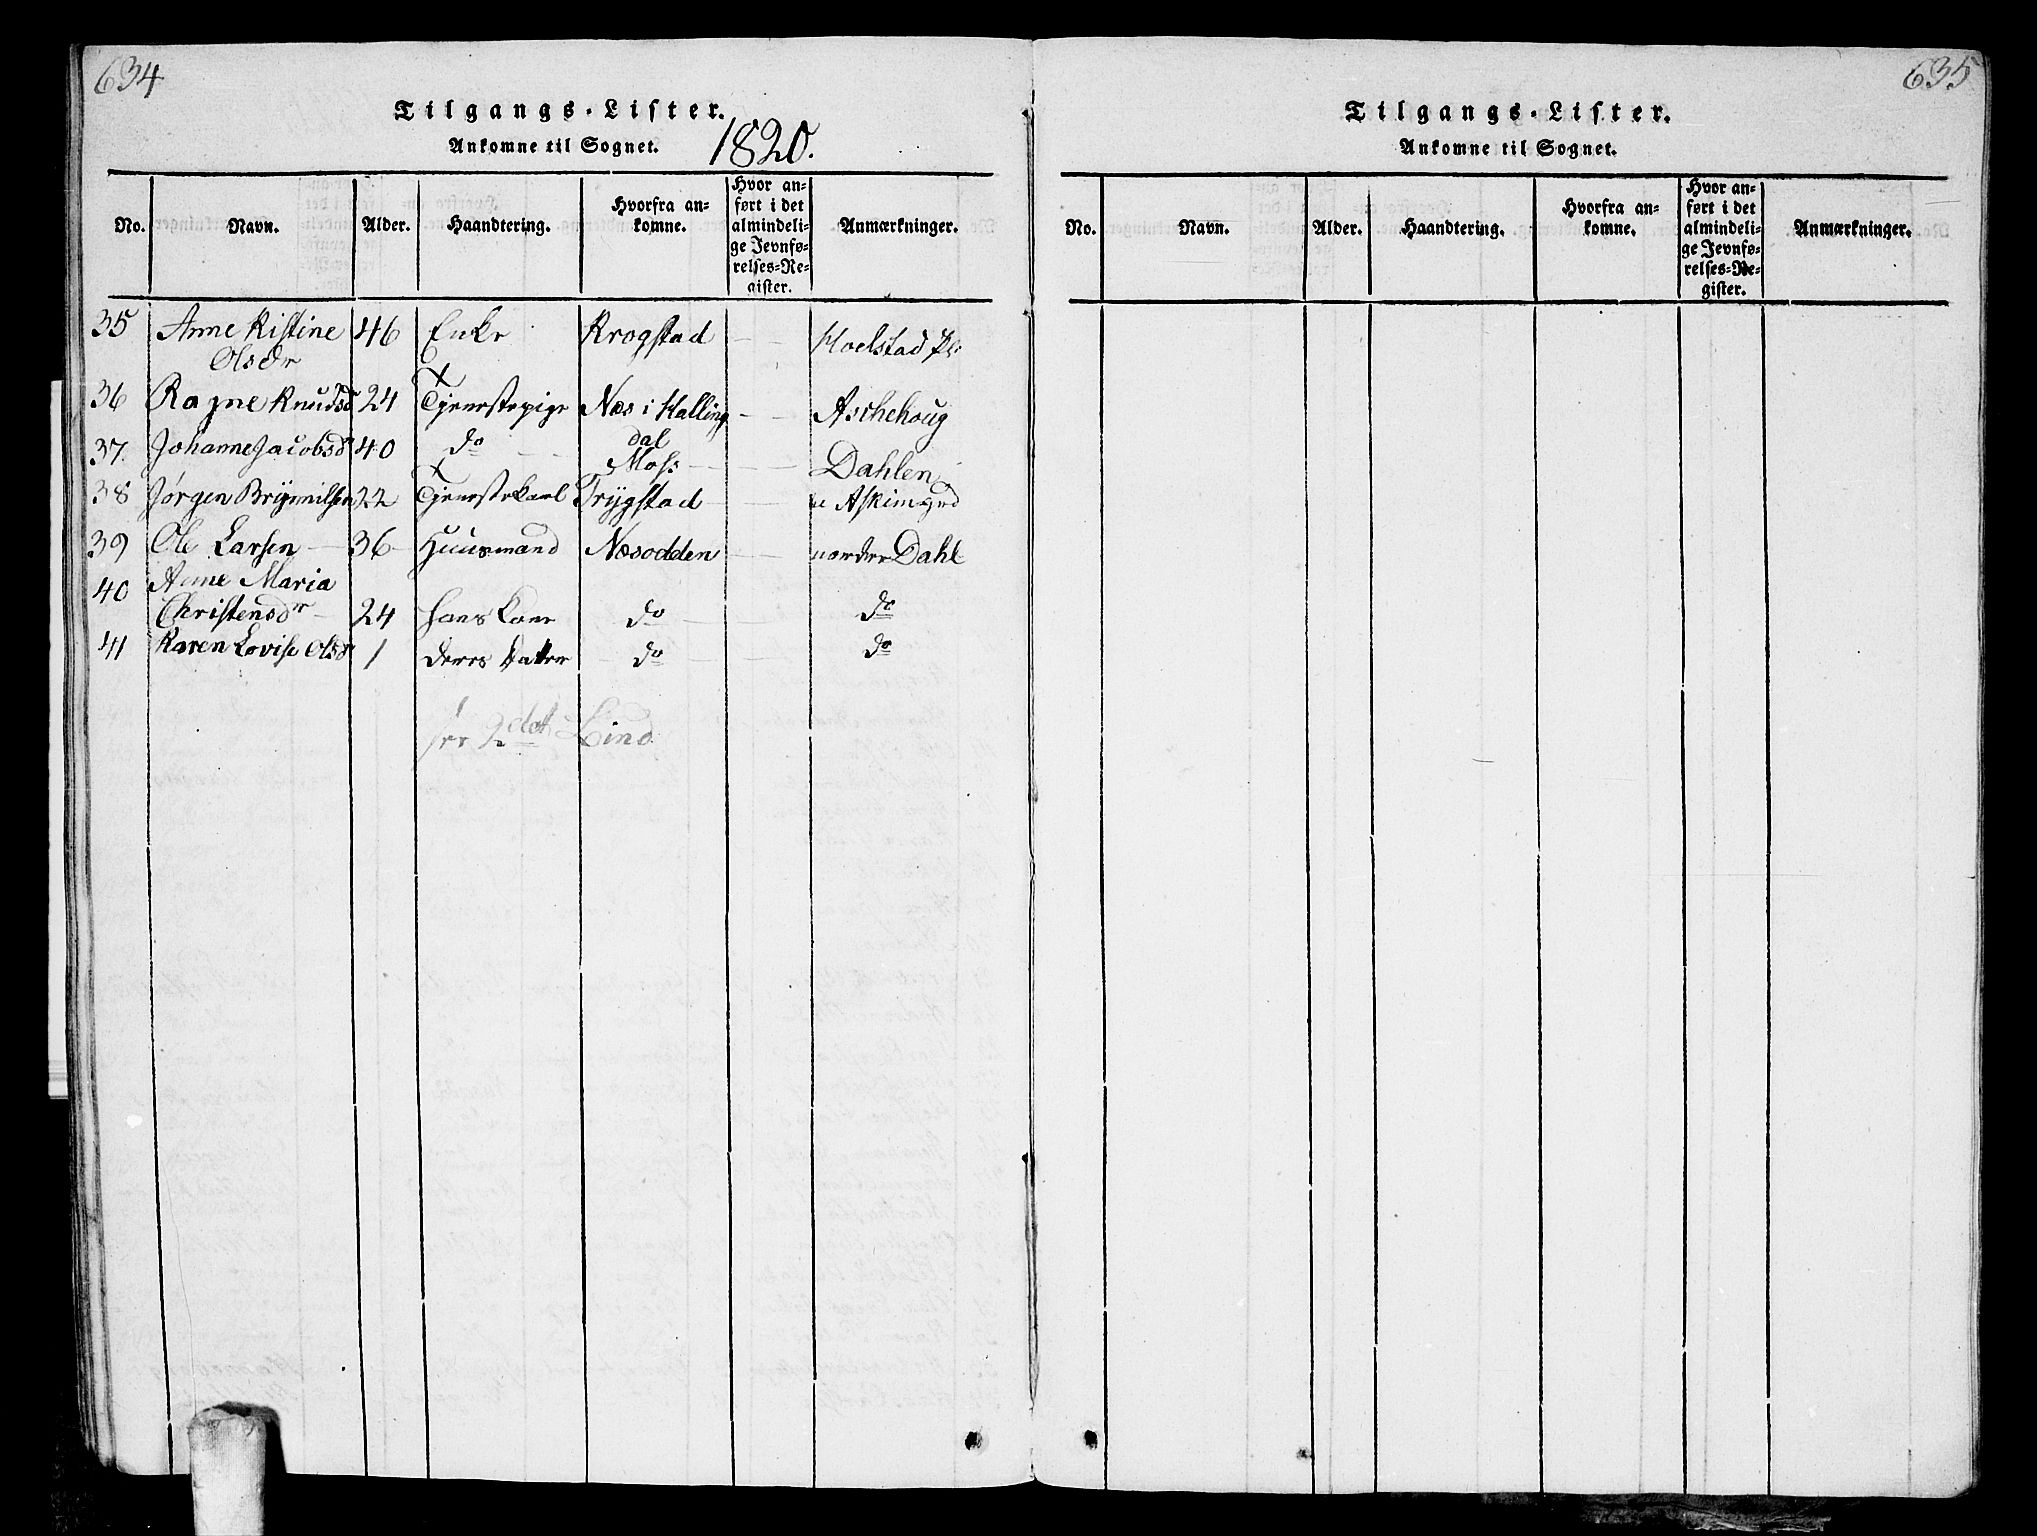 634
Tilgangs-Lister.
Ankomne til Sognet. 1820.
No. Navn. Alder. Haandtering. Hvorfra ankomne. Hvor anført i det almindelige Jevnførelses-Register. Anmærkninger.
35 Anne Kistine Olsdr 46 Enke Krogstad Hoelstad Pl:
36 Ragne Knudsd 24 Tjenestepige Næs i Hallingdal Aschehoug
37. Johanne Jacobsd 40 do Moss Dahlen
38 Jørgen Brynnilsen 22 Tjenestekarl Trygstad Askimgrd
39 Ole Larsen 36 Huusmand Næsodden nordre Dahl
40 Anne Maria Christensdr 24 hans Kone do do
41 Karen Lovise Olsd 1 deres Datter do do
see 2det Bind
635
Tilgangs-Lister.
Ankomne til Sognet.
No. Navn. Alder. Haandtering. Hvorfra ankomne. Hvor anført i det almindelige Jevnførelses-Register. Anmærkninger.